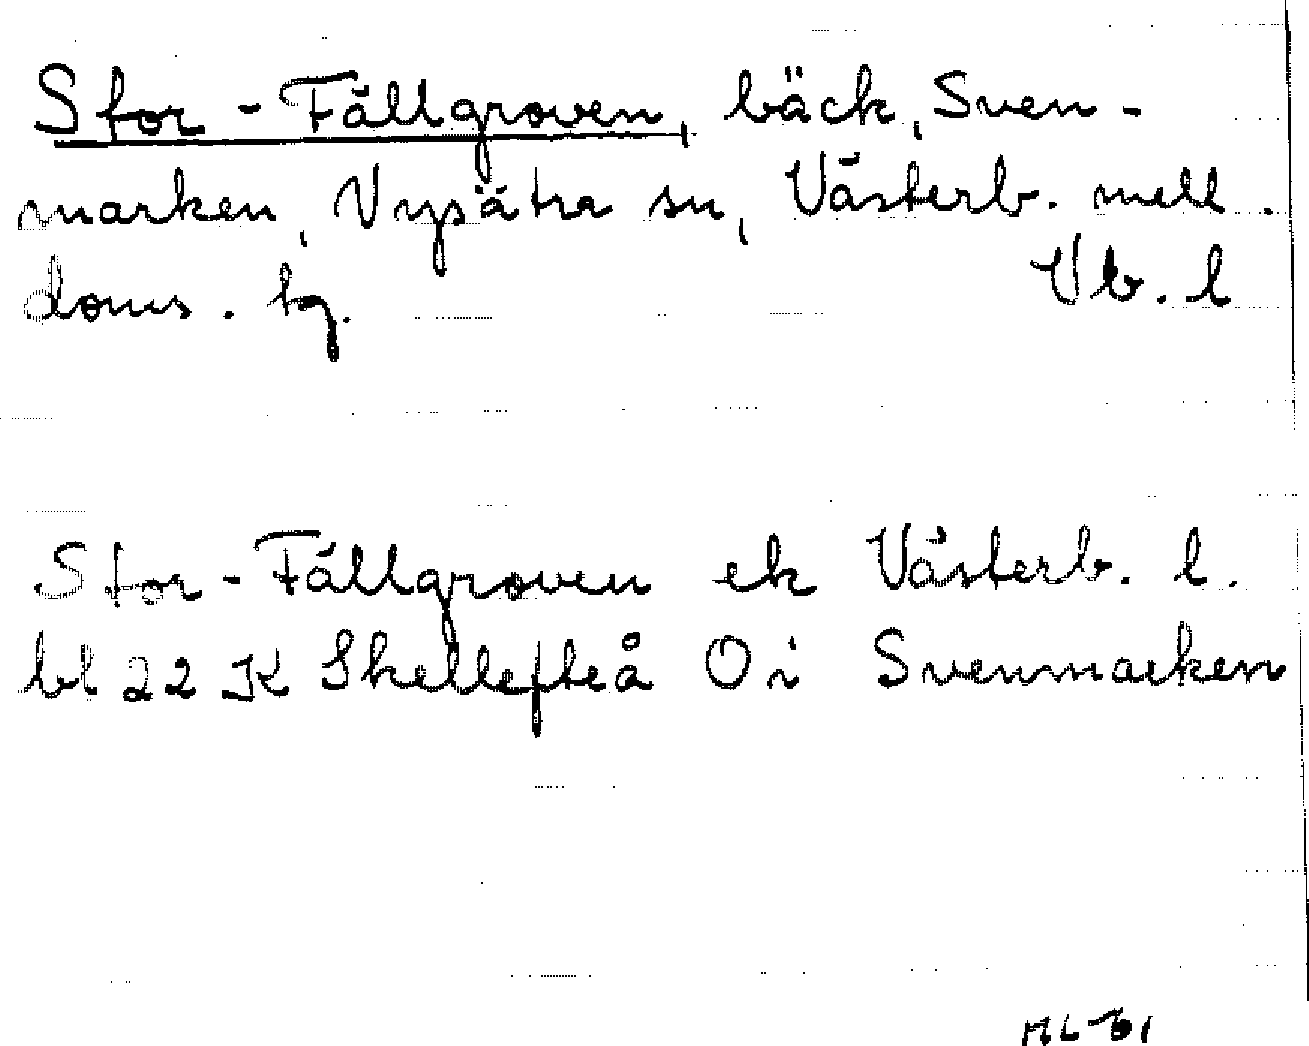 Stor-Fällgroven, bäck, Sven-
marken, Nysätra sn, Västerb. mell.
doms. tg. Vb. l
Stor-Fällgroven ek Västerb. l.
bl 22 K Skellefteå Oi Svenmarken